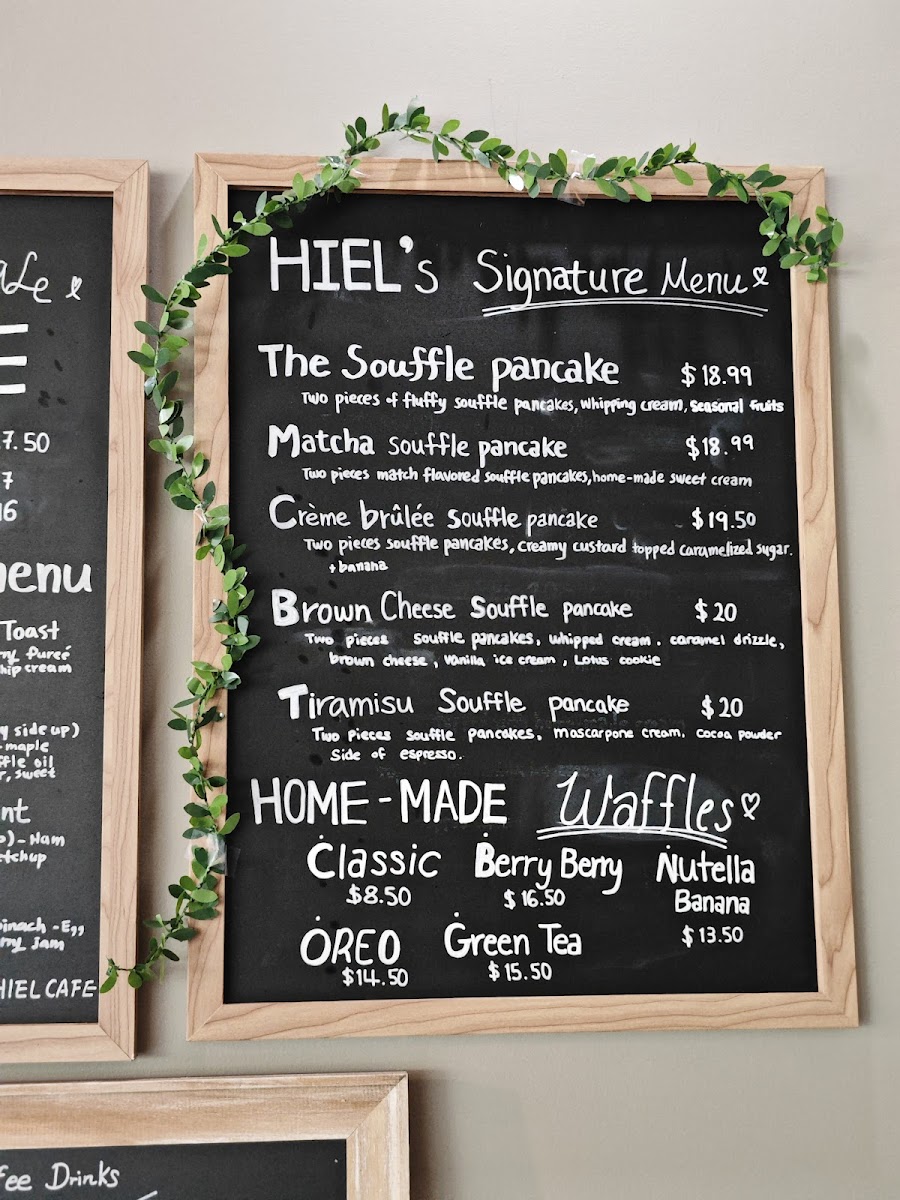 7.50
7
16
menu
Toast
hip cream
side up)
maple
oil
sweet
Ham
Egg
jam
HIEL CAFE
HIEL's Signature Menu
The Souffle pancake $18.99
Two pieces of fluffy souffle pancakes, whipping cream, seasonal fruits
Matcha souffle pancake $18.99
Two pieces match flavored souffle pancakes, home-made sweet cream
Crème brûlée souffle pancake $19.50
Two pieces souffle pancakes, creamy custard topped caramelized sugar.
+ banana
Brown Cheese Souffle pancake $20
Two pieces souffle pancakes, whipped cream, caramel drizzle,
brown cheese, vanilla ice cream, Lotus cookie
Tiramisu Souffle pancake $20
Two pieces souffle pancakes, mascarpone cream, cocoa powder
Side of espresso.
HOME-MADE Waffles
Classic Berry Berry Nutella
Banana
$8.50 $16.50 $13.50
OREO Green Tea
$14.50 $15.50
fee Drinks